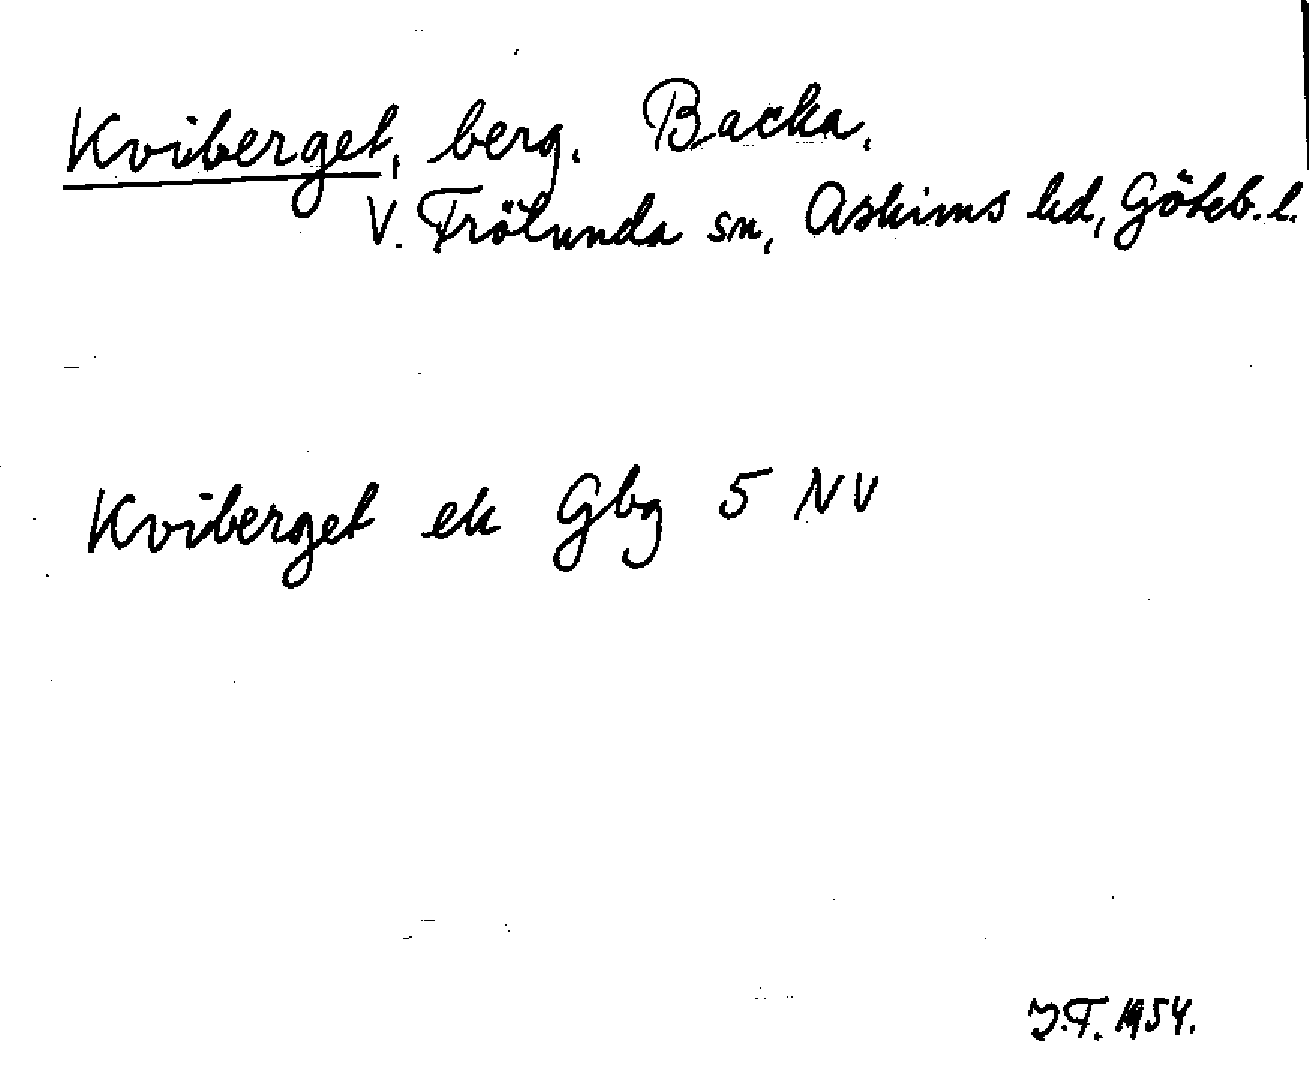 Kviberget, berg. Backa.
V. Frölunda sn, Askims hd, Göteb. l.
Kviberget ek Gbg 5 NV
J.T. 1954.